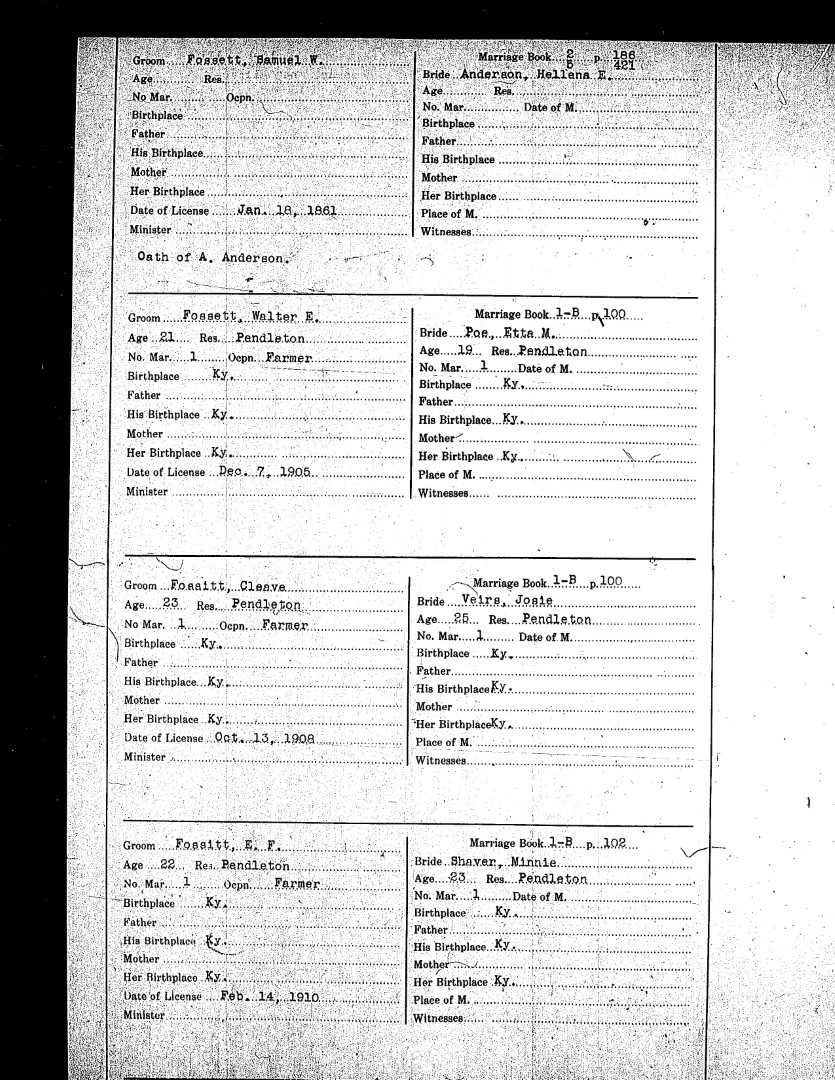 Groom Fossett, Samuel W.
Age Res.
No Mar. Ocpn.
Birthplace
Father
His Birthplace
Mother
Her Birthplace
Date of License Jan. 18, 1861
Minister
Marriage Book 2 p. 186
5 421
Bride Anderson, Hellena E.
Age Res.
No. Mar. Date of M.
Birthplace
Father
His Birthplace
Mother
Her Birthplace
Place of M.
Witnesses
Oath of A. Anderson.
Groom Fossett, Walter E.
Age 21 Res. Pendleton
No. Mar. 1 Ocpn. Farmer
Birthplace Ky.
Father
His Birthplace Ky.
Mother
Her Birthplace Ky.
Date of License Dec. 7, 1905
Minister
Marriage Book 1-B p. 100
Bride Poe, Etta M.
Age 19 Res. Pendleton
No. Mar. 1 Date of M.
Birthplace Ky.
Father
His Birthplace Ky.
Mother
Her Birthplace Ky.
Place of M.
Witnesses
Groom Fossitt, Cleave
Age 23 Res. Pendleton
No Mar. 1 Ocpn. Farmer
Birthplace Ky.
Father
His Birthplace Ky.
Mother
Her Birthplace Ky.
Date of License Oct. 13, 1908
Minister
Marriage Book 1-B p. 100
Bride Veirs, Josie
Age 25 Res. Pendleton
No. Mar. 1 Date of M.
Birthplace Ky.
Father
His Birthplace Ky.
Mother
Her Birthplace Ky.
Place of M.
Witnesses
Groom Fossitt, E. F.
Age 22 Res. Pendleton
No. Mar. 1 Ocpn. Farmer
Birthplace Ky.
Father
His Birthplace Ky.
Mother
Her Birthplace Ky.
Date of License Feb. 14, 1910
Minister
Marriage Book 1-B p. 102
Bride Shaver, Minnie
Age 23 Res. Pendleton
No. Mar. 1 Date of M.
Birthplace Ky.
Father
His Birthplace Ky.
Mother
Her Birthplace Ky.
Place of M.
Witnesses